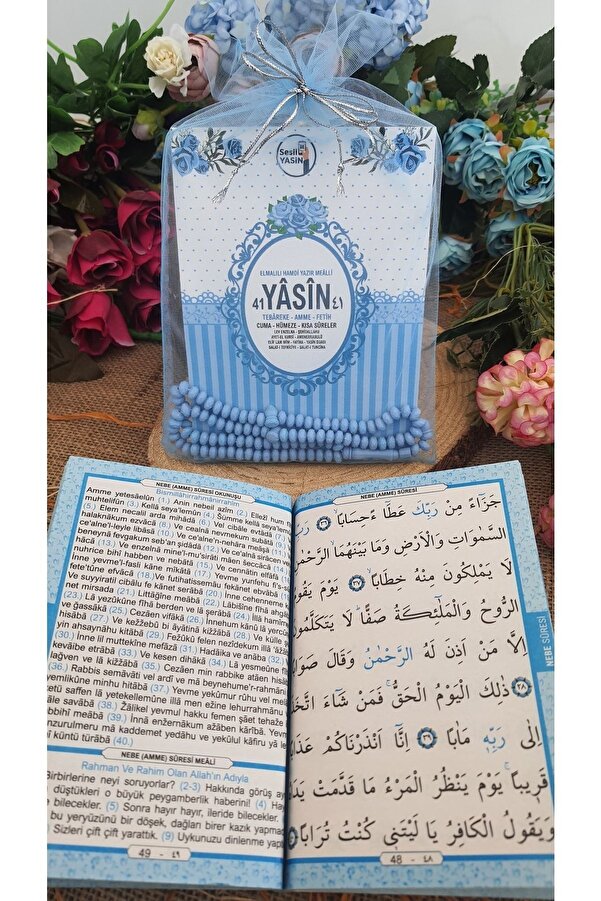 Sesli
YASİN
ELMALILI HAMDİ YAZIR MEÂLLİ
41 YÂSÎN ٤١
TEBÂREKE - AMME - FETİH
CUMA - HÜMEZE - KISA SÛRELER
AYET-EL KÜRSİ - AMENERRASULÜ
NEBE (AMME) SÛRESİ OKUNUŞU
Bismillâhirrahmânirrahîm
Amme yetesâelûn (1.) Anin nebeil azîm (2.) Ellezî hum
muhtelifûn (3.) Kellâ seya'lemûn (4.) Summe kellâ seya'lemûn
(5.) Elem necalil arda mihâdâ (6.) Vel cibâle evtâdâ (7.)
halaknâkum ezvâcâ (8.) Ve cealnâ nevmekum subâtâ (9.)
ve ce'alne'l-leyle libâsâ (10.) Ve ce'alne'n-nehâra meâşâ (11.)
beneynâ fevgakum seb'an şidâdâ (12.) Ve cealnâ sirâcen
hâcâ (13.) Ve enzelnâ mine'l-mu'sirâti mâen seccâcâ (14.)
nuhrice bihî habben ve nebâtâ (15.) Ve cennâtin elfâfâ (16.)
Inne yevme'l-fasli kâne mîkâtâ (17.) Yevme yunfehu fi's-
fete'tûne efvâcâ (18.) Ve futihatissemâu fekânet ebvâbâ (19.)
Ve suyyirati cibâlu fe kânet serâbâ (20.) İnne cehenneme
net mirsada (21.) Littâgîne meâbâ (22.) Lâbisîne fîhâ ahgâbâ
(23.) Lâ yezûkûne fîhâ berden ve lâ şerâbâ (24.) İllâ hamîmen
ve ğassâkâ (25.) Cezâen vifâkâ (26.) İnnehum kânû lâ yercûne
hisâbâ (27.) Ve kezzebû bi âyâtinâ kizzâbâ (28.) Ve külle
yin ahsaynâhu kitâbâ (29.) Fezûkû felen nezîdekum illâ
(30.) İnne lil muttekîne mefâzâ (31.) Hadâika ve anâba (32.)
kevâibe etrâbâ (33.) Ve kesen dihâkâ (34.) Lâ yesmeûne fîhâ
lağven ve lâ kizzâbâ (35.) Cezâen min rabbike atâen hisâbâ
(36.) Rabbis semâvâti vel ardı ve mâ beynehume'r-rahmâni
yemlikûne minhu hitâbâ (37.) Yevme yekûmur rûhu vel
etü saffen lâ yetekellemûne illâ men ezine lehurrahmânu
âle savâbâ (38.) Zâlikel yevmul hakku femen şâet tehaze
bbihî meâbâ (39.) İnnâ enzernâkum azâben karîbâ. Yevme
nzurulmeru mâ kaddemet yedâhu ve yekûlul kâfiru yâ
î küntü türâbâ (40.)
NEBE (AMME) SÛRESİ MEÂLİ
Rahman Ve Rahim Olan Allah'ın Adıyla
Birbirlerine neyi soruyorlar? (2-3) Hakkında görüş
düştükleri o büyük peygamberlik haberini! (4)
e bilecekler. (5) Sonra hayır hayır, ileride bilecekler.
bu yeryüzünü bir döşek, dağları birer kazık yapmadık
Sizleri çift çift yarattık. (9) Uykunuzu dinlenme
49 - ٤٩
NEBE (AMME) SÛRESİ
جَزَٓاءً مِنْ رَبِّكَ عَطَٓاءً حِسَاباًۙ ﴿٣٦﴾
السَّمٰوَاتِ وَالْاَرْضِ وَمَا بَيْنَهُمَا الرَّحْمٰنِ
لَا يَمْلِكُونَ مِنْهُ خِطَاباًۚ ﴿٣٧﴾ يَوْمَ يَقُومُ
الرُّوحُ وَالْمَلٰٓئِكَةُ صَفاًّۜ لَا يَتَكَلَّمُونَ
اِلَّا مَنْ اَذِنَ لَهُ الرَّحْمٰنُ وَقَالَ صَوَاباً
﴿٣٨﴾ ذٰلِكَ الْيَوْمُ الْحَقُّۚ فَمَنْ شَٓاءَ اتَّخَذَ
اِلٰى رَبِّهٖ مَاٰباً ﴿٣٩﴾ اِنَّٓا اَنْذَرْنَاكُمْ عَذَاباً
قَرٖيباًۚ يَوْمَ يَنْظُرُ الْمَرْءُ مَا قَدَّمَتْ يَدَاهُ
وَيَقُولُ الْكَافِرُ يَا لَيْتَنٖي كُنْتُ تُرَاباً
48 - ٤٨
NEBE SÛRESİ